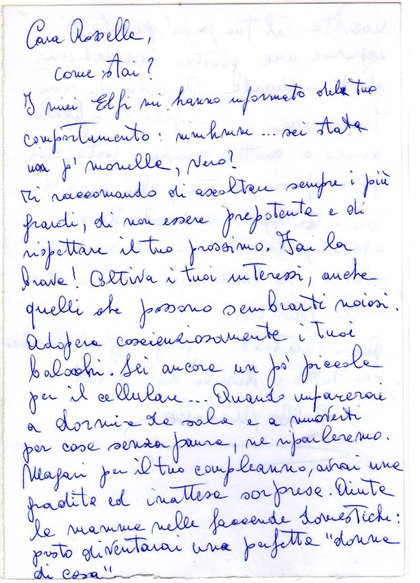 Cara Rossella,
come stai?
I miei Elfi mi hanno informato del tuo
comportamento: mmhmm... sei stata
un po' monella, vero?
Ti raccomando di ascoltare sempre i più
grandi, di non essere prepotente e di
rispettare il tuo prossimo. Fai la
brava! Coltiva i tuoi interessi, anche
quelli che possono sembrarti noiosi.
Adopera coscienziosamente i tuoi
balocchi. Sei ancora un po' piccola
per il cellulare... Quando imparerai
a dormire da sola e a muoverti
per casa senza paura, ne riparleremo.
Magari per il tuo compleanno, avrai una
gradita ed inattesa sorpresa. Aiuta
la mamma nelle faccende domestiche:
presto diventerai una perfetta "donna
di casa"